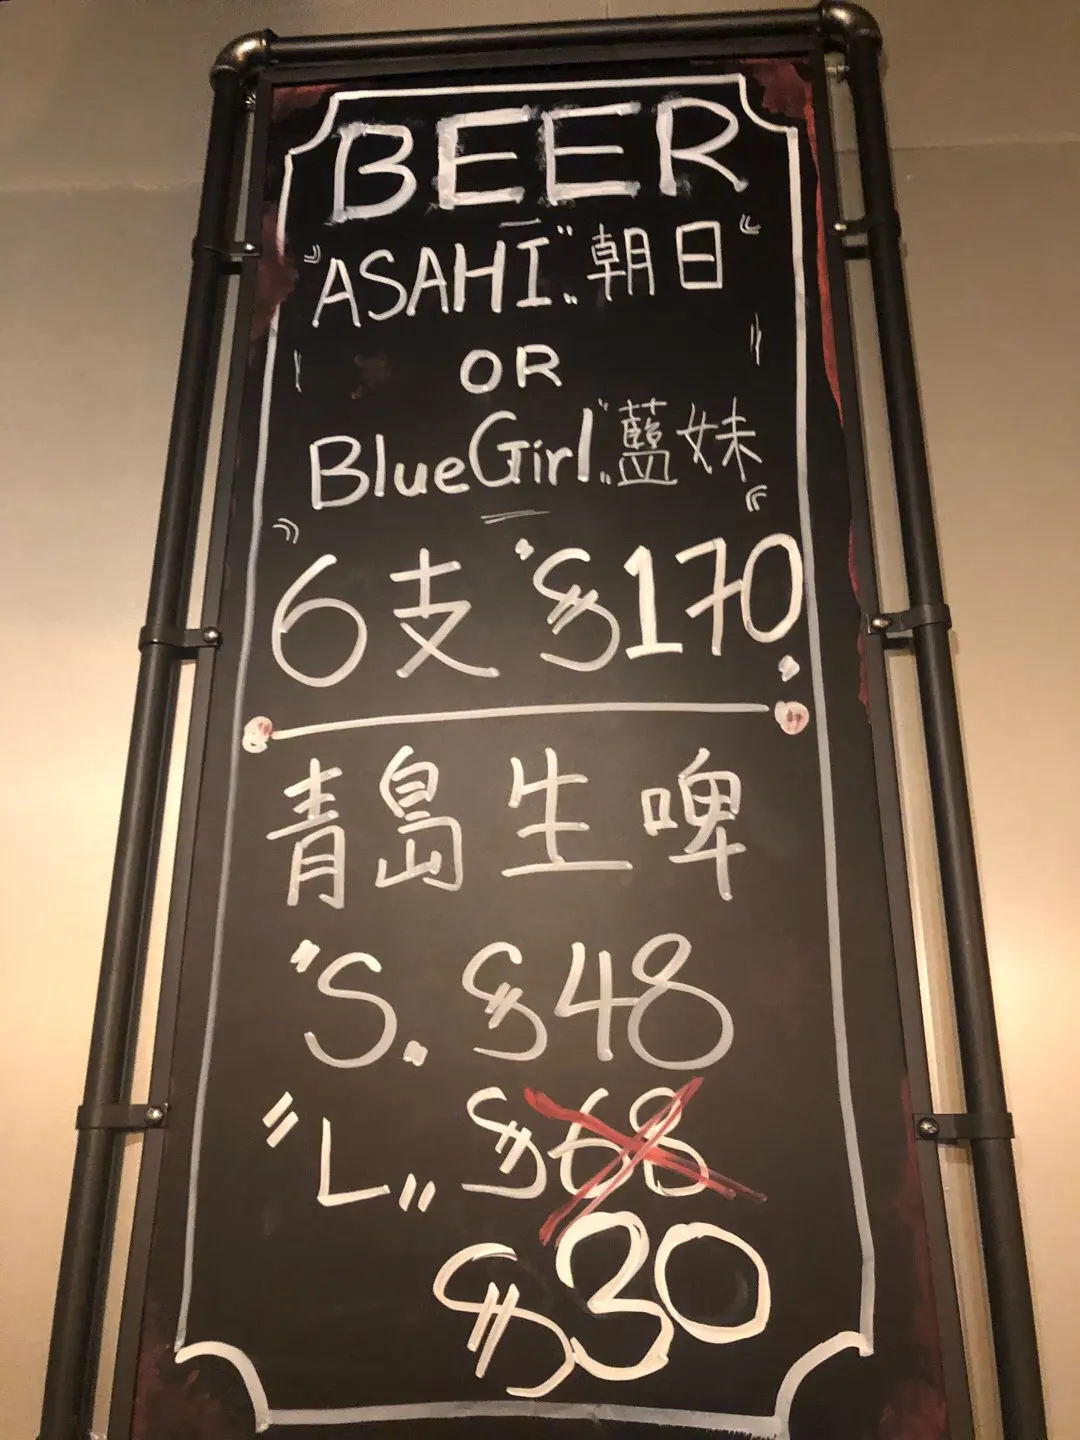 BEER
"ASAHI" 朝日
OR
BlueGirl" 藍妹
6支 $170
青島生啤
"S. $48
"L" $68
$30